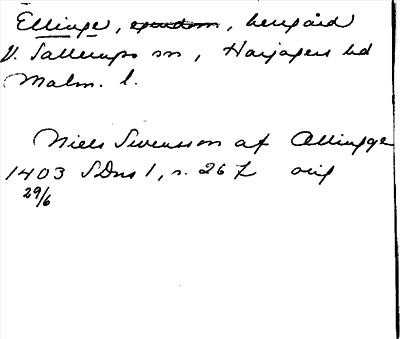 Ellinge, herrgård
V. Sallerups sn, Harjagers hd
Malm. l.
Niels Swensson af Ellingge
1403 SDns 1, s. 267 orig
29/6